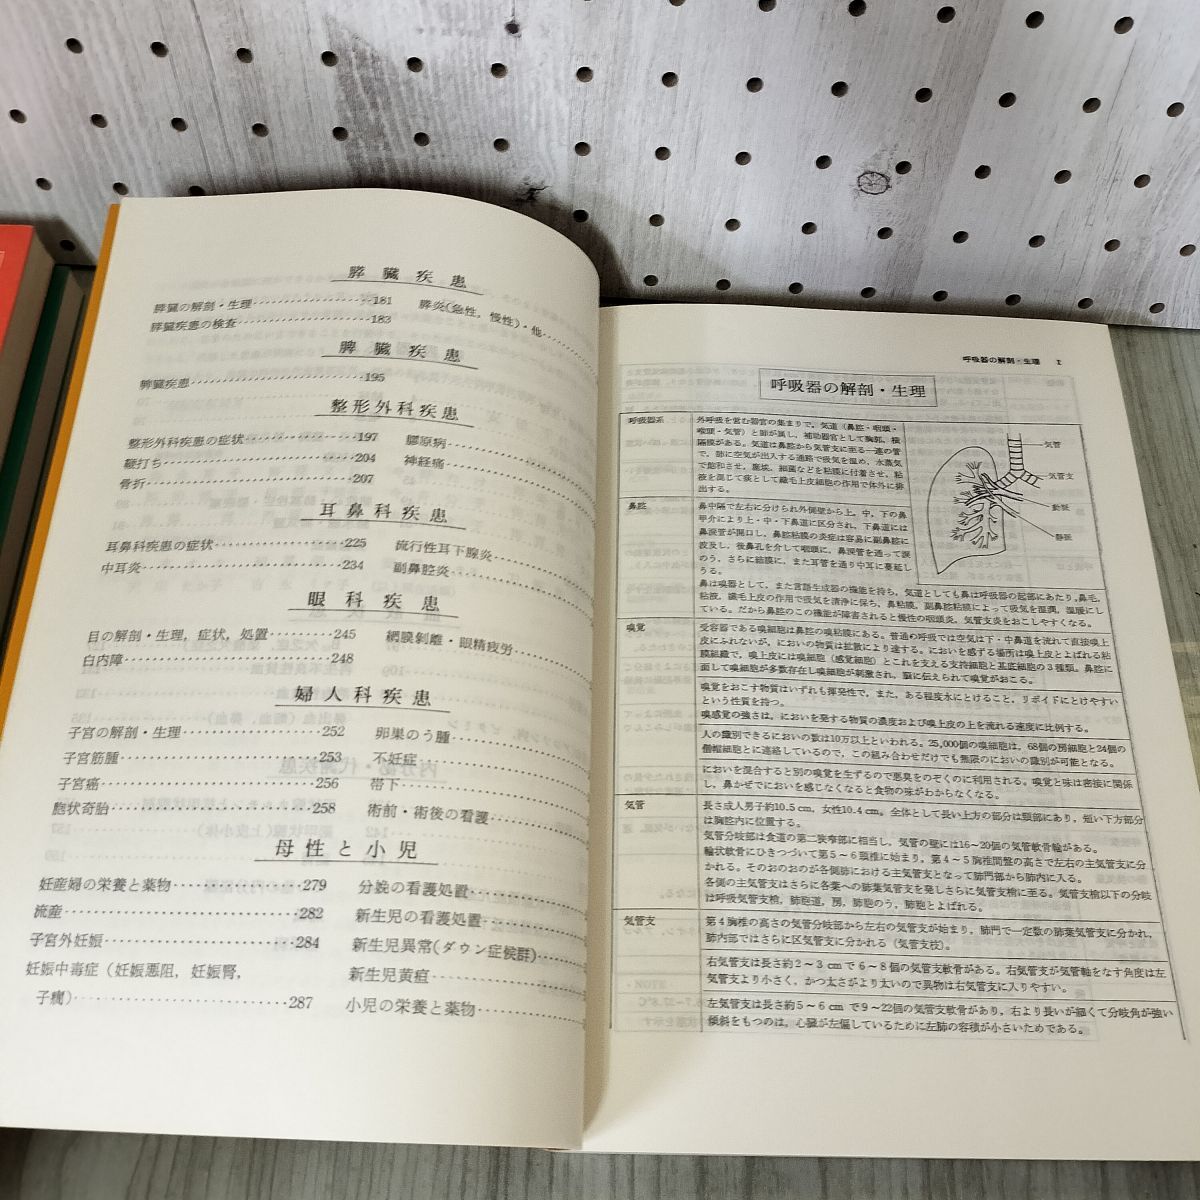 膵臓疾患
膵臓の解剖・生理……181 膵炎(急性，慢性)・他……
膵臓疾患の検査……183
脾臓疾患
脾臓疾患……195
整形外科疾患
整形外科疾患の症状……197 膠原病……
鞭打ち……204 神経痛……
骨折……207
耳鼻科疾患
耳鼻科疾患の症状……225 流行性耳下腺炎……
中耳炎……234 副鼻腔炎……
眼科疾患
目の解剖・生理，症状，処置……245 網膜剝離・眼精疲労……
白内障……248
婦人科疾患
子宮の解剖・生理……252 卵巣のう腫……
子宮筋腫……253 不妊症……
子宮癌……256 帯下……
胞状奇胎……258 術前・術後の看護……
母性と小児
妊産婦の栄養と薬物……279 分娩の看護処置……
流産……282 新生児の看護処置……
子宮外妊娠……284 新生児異常(ダウン症候群)……
妊娠中毒症(妊娠悪阻，妊娠腎， 新生児黄疸……
子癇)……287 小児の栄養と薬物……
呼吸器の解剖・生理 1
呼吸器の解剖・生理
呼吸器系 外呼吸を営む器官の集まりで，気道（鼻腔・咽頭・
喉頭・気管）と肺が属し，補助器官として胸郭，横
隔膜がある。気道は鼻腔から気管支に至る一連の管
で，肺に空気が出入する通路で吸気を温め，水蒸気
で飽和させ，塵埃，細菌などを粘膜に付着させ，粘
液を混じて痰として繊毛上皮細胞の作用で体外に排
出する。
気管
気管支
動脈
静脈
鼻腔 鼻中隔で左右に分けられ外側壁から上，中，下の鼻
甲介により上・中・下鼻道に区分され，下鼻道には
鼻涙管が開口し，鼻腔粘膜の炎症は容易に副鼻腔に
波及し，後鼻孔を介して咽頭に，鼻涙管を通って涙
のう，さらに結膜に，また耳管を通り中耳に蔓延し
うる。
鼻は嗅器として，また言語生成器の機能を持ち，気道としても鼻は呼吸器の起部にあたり，鼻毛，
粘液，繊毛上皮の作用で吸気を清浄に保ち，鼻粘膜，副鼻腔粘膜によって吸気を湿潤，温暖にし
ている。だから鼻腔のこの機能が障害されると慢性の咽頭炎，気管支炎をおこしやすくなる。
嗅覚 受容器である嗅細胞は鼻腔の嗅粘膜にある。普通の呼吸では空気は下・中鼻道を流れて直接嗅上
皮にふれないが，においの物質は拡散により達する。においを感ずる場所は嗅上皮とよばれる粘
膜組織で，嗅上皮には嗅細胞（感覚細胞）とこれを支える支持細胞と基底細胞の３種類。鼻腔に
面して嗅細胞が多数存在し嗅細胞が刺激され，脳に伝えられて嗅覚がおこる。
嗅覚をおこす物質はいずれも揮発性で，また，ある程度水にとけること，リポイドにとけやすい
という性質を持つ。
嗅感覚の強さは，においを発する物質の濃度および嗅上皮の上を流れる速度に比例する。
人の識別できるにおいの数は10万以上といわれる。25,000個の嗅細胞は，68個の房細胞と24個の
僧帽細胞とに連絡しているので，この組み合わせだけでも無限のにおいの識別が可能となる。
においを混合すると別の嗅覚を生ずるので悪臭をのぞくのに利用される。嗅覚と味は密接に関係
し，鼻かぜでにおいを感じなくなると食物の味がわからなくなる。
気管 長さ成人男子約10.5cm，女性10.4cm。全体として長い上方の部分は頸部にあり，短い下方部分
は胸腔内に位置する。
気管分岐部は食道の第二狭窄部に相当し，気管の壁には16～20個の気管軟骨輪がある。
輪状軟骨にひきつづいて第5～6頸椎に始まり，第4～5胸椎間盤の高さで左右の主気管支に分
かれる。そのおのおのが各側肺における主気管支となって肺門部から肺内に入る。
各側の主気管支はさらに各葉への肺葉気管支を発しさらに気管支梢に至る。気管支梢以下の分岐
は呼吸気管支梢，肺胞道，房，肺胞のう，肺胞とよばれる。
気管支 第4胸椎の高さの気管分岐部から左右の気管支が始まり，肺門で一定数の肺葉気管支に分かれ，
肺内部ではさらに区気管支に分かれる（気管支枝）。
右気管支は長さ約2～3cmで6～8個の気管支軟骨がある。右気管支が気管軸をなす角度は左
気管支より小さく，かつ太さがより太いので異物は右気管支に入りやすい。
左気管支は長さ約5～6cmで9～22個の気管支軟骨があり，右より長いが細くて分岐角が強い
傾斜をもつのは，心臓が左偏しているために左肺の容積が小さいためである。